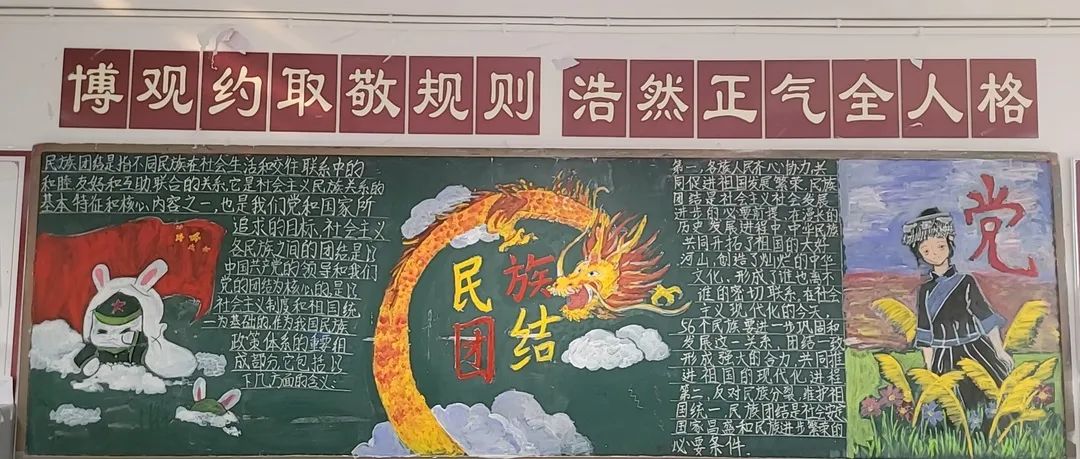 博观约取敬规则 浩然正气全人格
民族团结是指不同民族在社会生活和交往联系中的
和睦、友好和互助、联合的关系,它是社会主义民族关系的
基本特征和核心内容之一,也是我们党和国家所
追求的目标,社会主义
各民族之间的团结是以
中国共产党的领导和我们
党的团结为核心的,是以
社会主义制度和祖国统
一为基础的,作为我国民族
政策体系的重要组
成部分,它包括以
下几方面的含义:
民族
团结
第一,各族人民齐心协力,共
同促进祖国发展繁荣,民族
团结是社会主义社会发展
进步的必要前提,在漫长的
历史发展进程中,中华民族
共同开拓了祖国的大好
河山,创造了灿烂的中华
文化,形成了谁也离不
谁的密切联系,在社会
主义现代化的今天,
56个民族要进一步巩固和
发展这一关系,团结一致
形成强大的合力,共同推
进祖国的现代化进程
第二,反对民族分裂,维护祖
国统一,民族团结是社会安定
国家昌盛和民族进步繁荣的
必要条件.
党